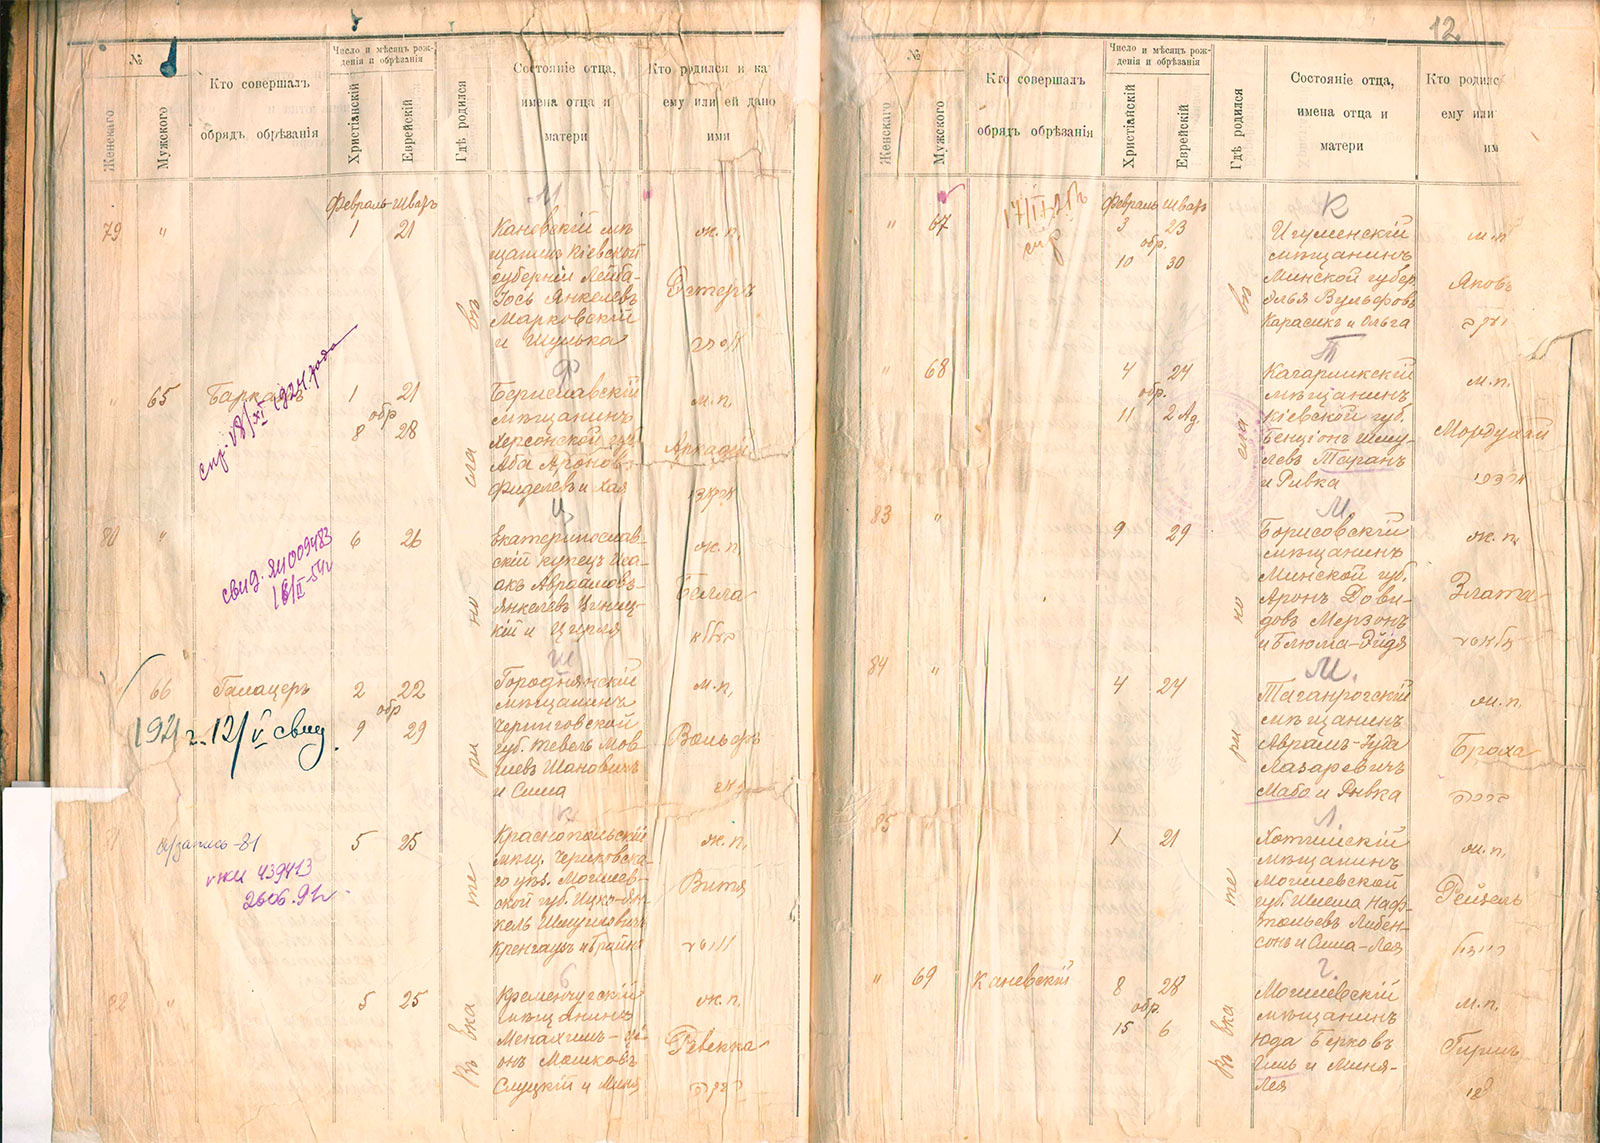 12
№
Женскаго
Мужского
Кто совершалъ
обрядъ обрѣзанія
Число и мѣсяцъ рож-
денія и обрѣзанія
Христіанскій
Еврейскій
Гдѣ родился
Состояніе отца,
имена отца и
матери
Кто родился и ка
ему или ей дано
имя
Февраль Шватъ
79
"
1 21
Каневскій мѣ
щанинъ Кіевской
губерніи Лейба-
Іось Янкелевъ
Марковскій
и Шулька
ж. п.
Естеръ
אסתר
Ф
"
65
1 21
обр
8 28
Бериславскій
мѣщанинъ
Херсонской губ
Аба Ароновъ
Фиделевъ и Хая
м. п.
Аркадій
18/XI 1924 года
Ц
80
"
6 26
Екатеринослав-
скій купецъ Иса-
акъ Авраамовъ-
Янкелевъ Циниц-
кій и Цирля
ж. п.
Белла
свид. ЯЮ 009483
18/II-54г
Ш
66
Галацеръ
2 22
обр
9 29
Городнянскій
мѣщанинъ
Черниговской
губ. Тевель Мов-
шевъ Шановичъ
и Сима
м. п.
Вольфъ
1921 г. 12/V свид.
К
81
а/запись-81
439413
2606.91г.
5 25
Краснопольскій
мѣщ. Чериковска-
го уѣз. Могилев-
ской губ. Ицко-Ян-
кель Шмуиловичъ
Кренгаузъ и Брайна
ж. п.
Витя
С
82
"
5 25
Кременчугскій
мѣщанинъ
Менахимъ-Ці-
онъ Мошковъ
Слуцкій и Миня
ж. п.
Ревекка
רבקה
Въ Екатеринославѣ
№
Женскаго
Мужского
Кто совершалъ
обрядъ обрѣзанія
Число и мѣсяцъ рож-
денія и обрѣзанія
Христіанскій
Еврейскій
Гдѣ родился
Состояніе отца,
имена отца и
матери
Кто родилс
ему или
им
Февраль Шватъ
К
"
67
3 23
обр.
10 30
Игуменскій
мѣщанинъ
Минской губер
Элья Вульфовъ
Карасикъ и Ольга
м. п
Яковъ
יעקב
Т
"
68
4 24
обр.
11 2 Ад.
Кагарликскій
мѣщанинъ
Кіевской губ.
Бенціонъ Шму-
левъ Таранъ
и Ривка
м. п.
Мордухай
מרדכי
М
83
"
9 29
Борисовскій
мѣщанинъ
Минской губ.
Аронъ Дови-
довъ Мерзонъ
и Блюма-Эйдя
ж. п.
Злата
М.
84
"
4 24
Таганрогскій
мѣщанинъ
Аврамъ-Іуда
Лазаревичъ
Мабо и Рывка
ж. п.
Броха
ברכה
Л
85
"
1 21
Хотимскій
мѣщанинъ
Могилевской
губ. Шлема Наф-
тольевъ Либен-
сонъ и Сима-Лея
ж. п.
Рейзель
רייזיל
Г.
"
69
Каневскій
8 28
обр.
15 6
Могилевскій
мѣщанинъ
Юда Берковъ
Гиль и Миня-
Лея
м. п.
Гиршъ
צבי